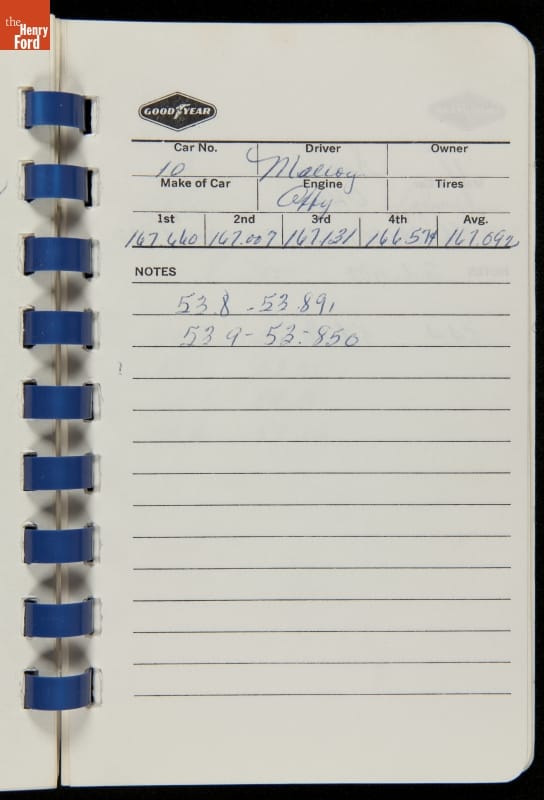 the
Henry
Ford
GOODYEAR
Car No. Driver Owner
10 Malloy
Make of Car Engine Tires
Offy
1st 2nd 3rd 4th Avg.
167.660 167.007 167.131 166.574 167.092
NOTES
53.8 - 53.891
53 9 - 53.850